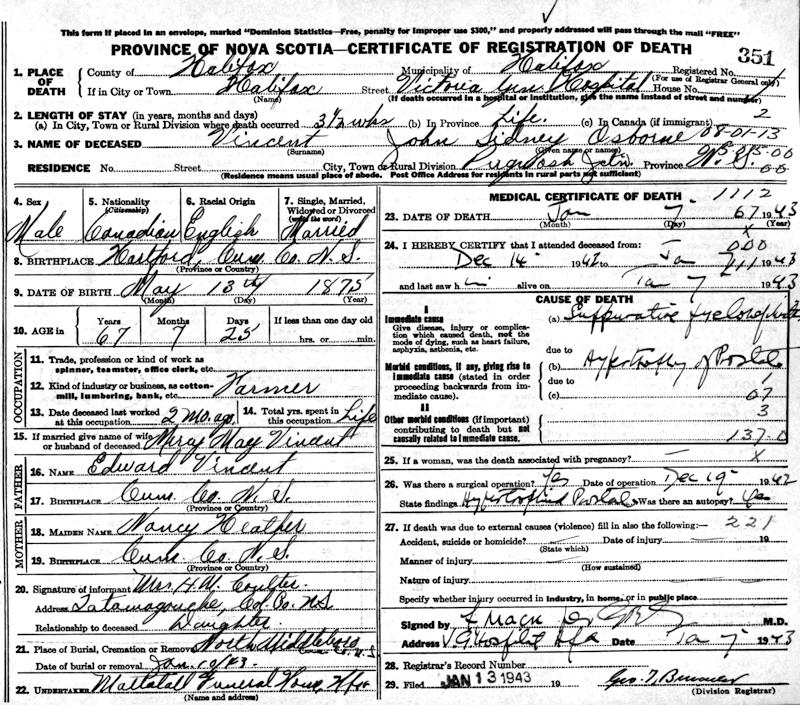 This form if placed in an envelope, marked "Dominion Statistics—Free, penalty for improper use $300," and properly addressed will pass through the mail "FREE"
PROVINCE OF NOVA SCOTIA—CERTIFICATE OF REGISTRATION OF DEATH
351
1. PLACE OF DEATH
County of Halifax Municipality of Halifax Registered No.
(For use of Registrar General only)
If in City or Town Halifax Street Victoria Gen. Hospital House No.
(Name) (If death occurred in a hospital or institution, give the name instead of street and number)
2. LENGTH OF STAY (in years, months and days) 2
(a) In City, Town or Rural Division where death occurred 3½ wks (b) In Province Life. (c) In Canada (if immigrant)
08-01-13
3. NAME OF DECEASED Vincent John Sidney Osborne
(Surname) (Given name or names)
RESIDENCE No. Street City, Town or Rural Division Pugwash Jctn. Province N. S.
(Residence means usual place of abode. Post Office Address for residents in rural parts not sufficient)
4. Sex Male
5. Nationality (Citizenship) Canadian
6. Racial Origin English
7. Single, Married, Widowed or Divorced (write the word) Married
8. BIRTHPLACE Hartford, Cum. Co. N. S.
(Province or Country)
9. DATE OF BIRTH May 13th 1875
(Month) (Day) (Year)
10. AGE in Years 67 Months 7 Days 25 If less than one day old hrs. or min.
OCCUPATION
11. Trade, profession or kind of work as spinner, teamster, office clerk, etc.
12. Kind of industry or business, as cotton-mill, lumbering, bank, etc. Farmer
13. Date deceased last worked at this occupation 2 mo. ago
14. Total yrs. spent in this occupation Life
15. If married give name of wife or husband of deceased Mercy May Vincent
FATHER
16. NAME Edward Vincent
17. BIRTHPLACE Cum. Co. N. S.
(Province or Country)
MOTHER
18. MAIDEN NAME Nancy Heather
19. BIRTHPLACE Cum. Co. N. S.
(Province or Country)
20. Signature of informant Mrs H. W. Coulter
Address Tatamagouche, Col. Co. N.S.
Relationship to deceased Daughter
21. Place of Burial, Cremation or Removal North Middleboro
Date of burial or removal Jan. 10/43.
22. UNDERTAKER Mattatall Funeral Home, Hfx
(Name and address)
MEDICAL CERTIFICATE OF DEATH. 1112
23. DATE OF DEATH Jan 7 67 1943
(Month) (Day) (Year)
x
24. I HEREBY CERTIFY that I attended deceased from: 000
Dec 14 1942 to Jan 7 1943
and last saw him alive on Jan 7 1943
CAUSE OF DEATH
I
Immediate cause
Give disease, injury or complication which caused death, not the mode of dying, such as heart failure, asphyxia, asthenia, etc.
(a) Suppurative
due to
Morbid conditions, if any, giving rise to immediate cause (stated in order proceeding backwards from immediate cause).
(b) Hypertrophy of Prostate
due to 1
(c) 07
II
3
Other morbid conditions (if important) contributing to death but not causally related to immediate cause.
137.0
25. If a woman, was the death associated with pregnancy? — x
26. Was there a surgical operation? Yes Date of operation Dec 19 1942
State findings Hypertrophied Prostate Was there an autopsy? Yes
27. If death was due to external causes (violence) fill in also the following:— 221
Accident, suicide or homicide? Date of injury 19
(State which)
Manner of injury
(How sustained)
Nature of injury
Specify whether injury occurred in industry, in home, or in public place
Signed by M.D.
Address V. G. Hospital Hfx Date Jan 7 1943
28. Registrar's Record Number
29. Filed JAN 13 1943 19
(Division Registrar)